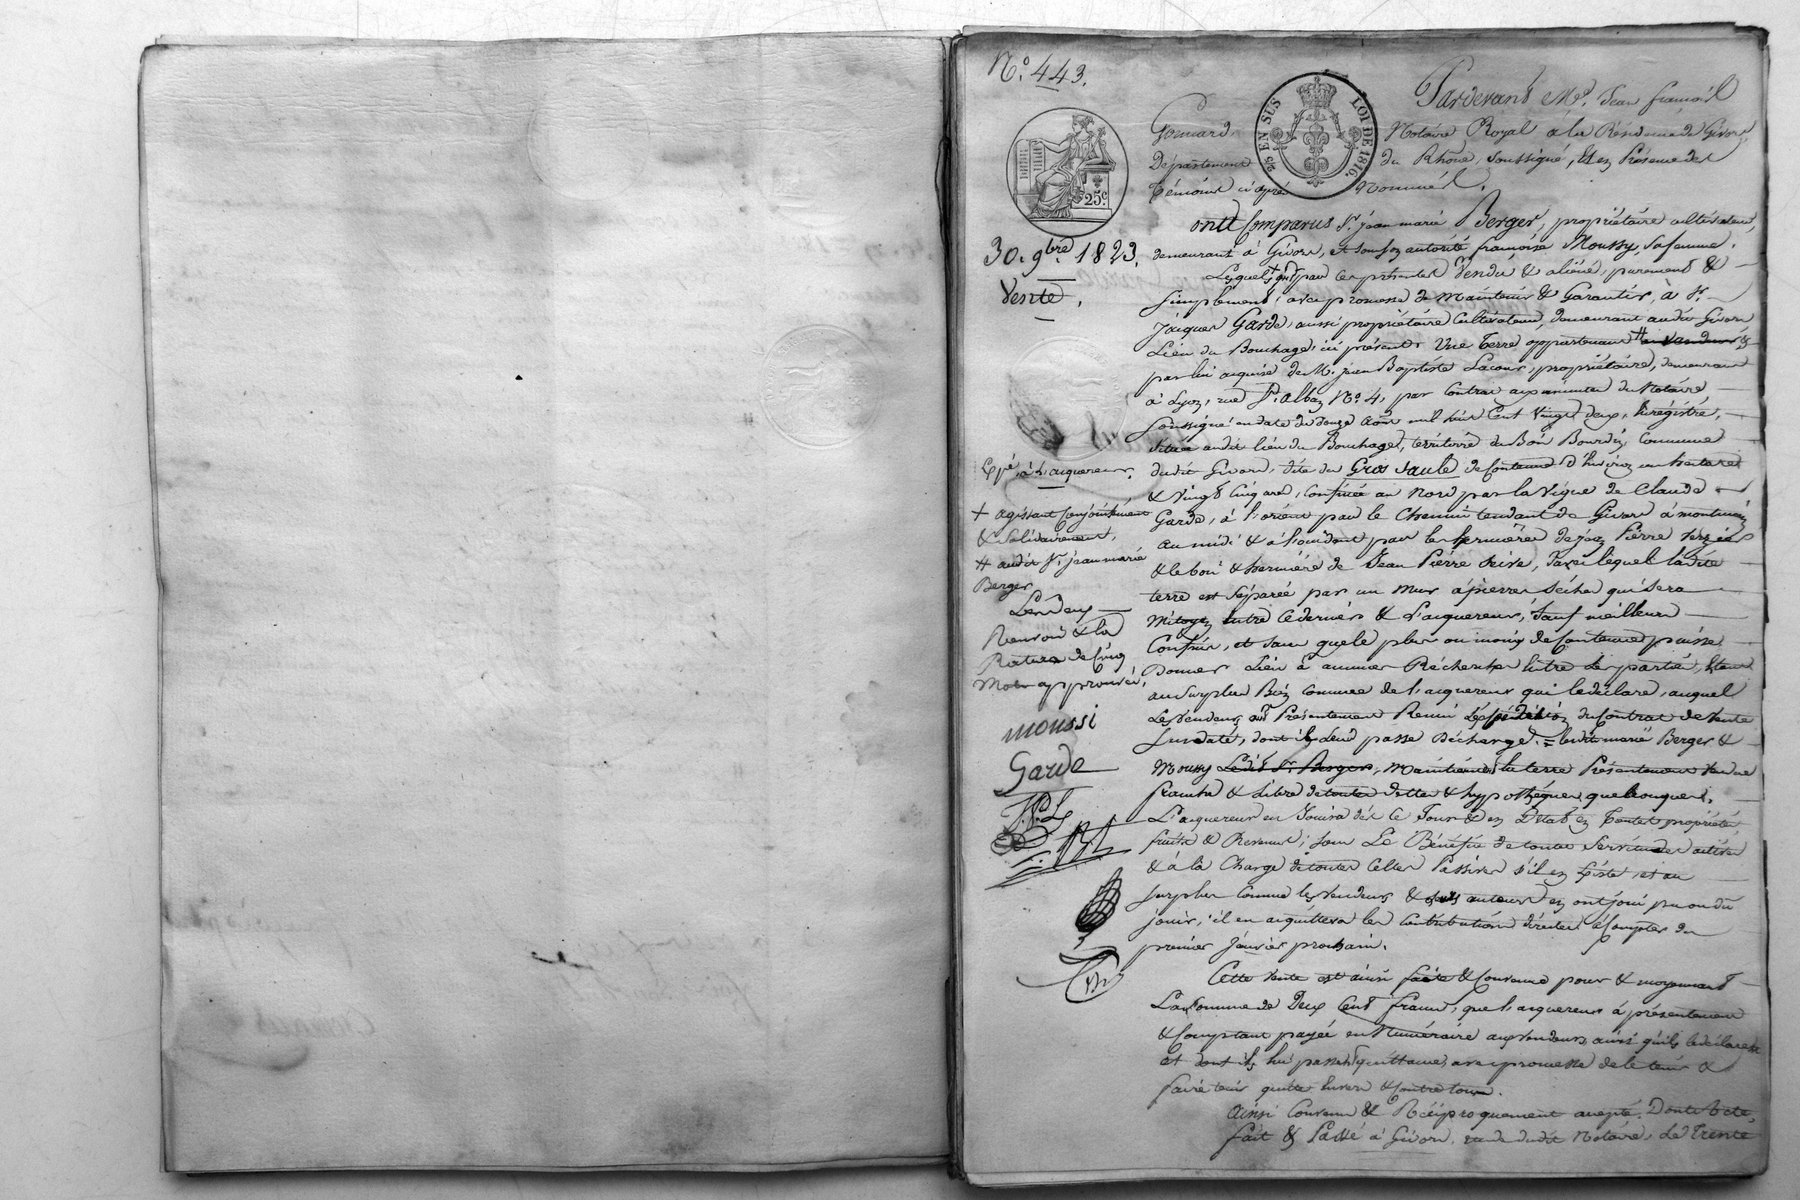 N.° 443.
25 EN SUS
LOI DE 1816.
25c
30. 9bre 1823.
Vente.
Expé. à l'aquereur.
+ agissant conjointement
& solidairement,
# audit Sr. jean marie
Berger
Les deux
Renvois & la
Rature de Cinq
Mots approuvés,
moussi
Garde
Pardevant Me. Jean françois
Gonnard Notaire Royal à la Résidence de Givors,
Département du Rhône, soussigné, Et en Présence des
témoins ci après nommés.
ont Comparus Sr. jean marie Berger, propriétaire cultivateur,
demeurant à Givors, et sous son autorité françoise Moussy, sa femme.
Lesquels + ont par ces présentes Vendu & aliéné, purement &
simplement, avec promesse de Maintenir & Garantir, à Sr.
Jacques Garde, aussi propriétaire Cultivateur, demeurant audit Givors
Lieu du Bouchage, ici présent, Une Terre appartenant # aux vendeurs, &
par lui acquise de Mr. jean Baptiste Lacour, propriétaire, demeurant
à Lyon, rue St. Alban N.° 4, par Contrat aux minutes du Notaire
soussigné en date du douze Août mil huit Cent Vingt deux, Enregistré,
située audit lieu du Bouchage, territoire du Bourdy, Commune
dudit Givors, dite du Gros Saule de Contenue d'Environ un hectare
& Vingt Cinq ares, Confinée au Nord par la Vigne de Claude
Garde, à l'orient par le Chemin tendant de Givors à
au midi & à l'occident par les hermières de Jean Pierre
& le bois & hermière de Jean Pierre Seive, Duquel ladite
terre est séparée par un Mur à pierres sèches qui sera
Mitoyen Entre Ce dernier & l'aquereur, Sauf meilleurs
Confins, et sans que le plus ou moins de Contenue puisse
Donner Lieu à aucunes Recherches Entre les parties, Etant
au surplus Bien Connue de l'aquereur qui le déclare, auquel
Les Vendeurs ont Présentement Remis l'Expédition du Contrat de Vente
Susdaté, dont il leur passe Décharge. = lesdits mariés Berger &
Moussy Ledit Sr. Berger, Maintiennent la terre Présentement Vendue
franche & Libre de toutes dettes & hypothèques quelconques.
L'aquereur en Jouira dès Ce Jour & en L'état en Toute propriété
fruits & Revenus, sous Le Bénéfice de toutes Servitudes actives
& à la Charge de toutes Celles Passives s'il en Existe, et au
surplus Comme les Vendeurs & leurs auteurs en ont joui pu ou dû
jouir, il en aquittera les Contributions directes à Compter du
premier Janvier prochain.
Cette Vente est ainsi faite & Convenue pour & moyennant
La Somme de Deux Cent francs, que l'aquereur à présentement
& Comptant payée en Numéraire aux Vendeurs, ainsi qu'ils le déclarent
et dont ils lui passent quittance avec promesse de le tenir &
faire tenir quitte Envers & Contre tous.
Ainsi Convenu & Réciproquement accepté. Dont Acte
fait & Passé à Givors, étude dudit Notaire, Le Trente